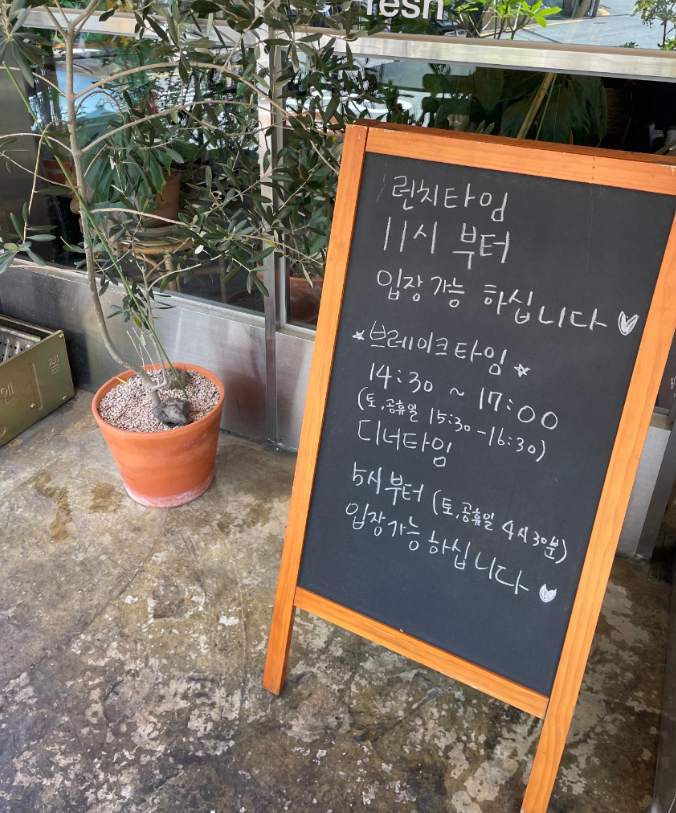 resh
런치타임
11시 부터
입장 가능 하십니다
브레이크타임
14:30 ~ 17:00
(토,공휴일 15:30-16:30)
디너타임
5시부터 (토,공휴일 4시30분)
입장가능 하십니다